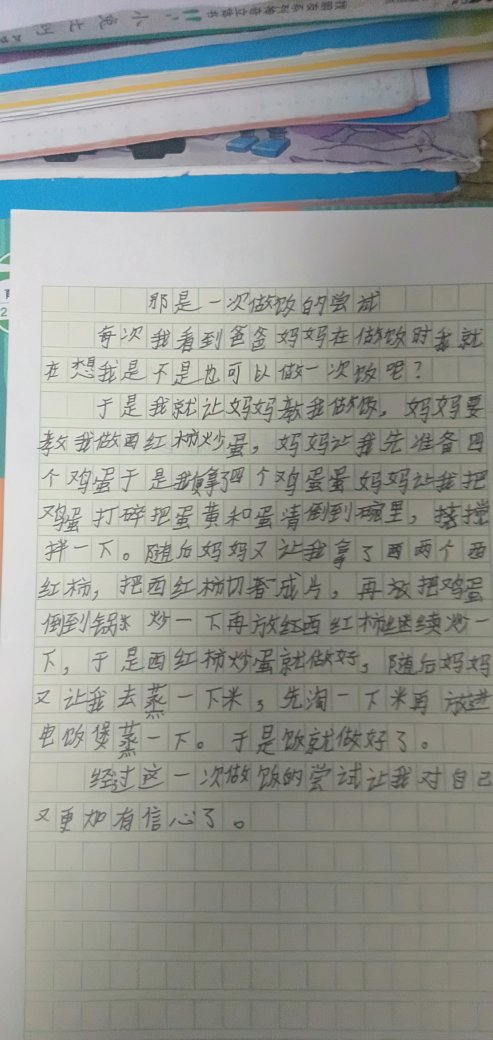 小
那是一次做饭的尝试
每次我看到爸爸妈妈在做饭时我就
在想我是不是也可以做一次饭呢?
于是我就让妈妈教我做饭，妈妈要
教我做西红柿炒蛋，妈妈让我先准备四
个鸡蛋于是我拿了四个鸡蛋蛋妈妈让我把
鸡蛋打碎把蛋黄和蛋清倒到碗里，搅
拌一下。随后妈妈又让我拿了西两个西
红柿，把西红柿切成片，再把鸡蛋
倒到锅炒一下再放红西红柿继续炒一
下，于是西红柿炒蛋就做好，随后妈妈
又让我去蒸一下米，先淘一下米再放进
电饭煲蒸一下。于是饭就做好了。
经过这一次做饭的尝试让我对自己
又更加有信心了。